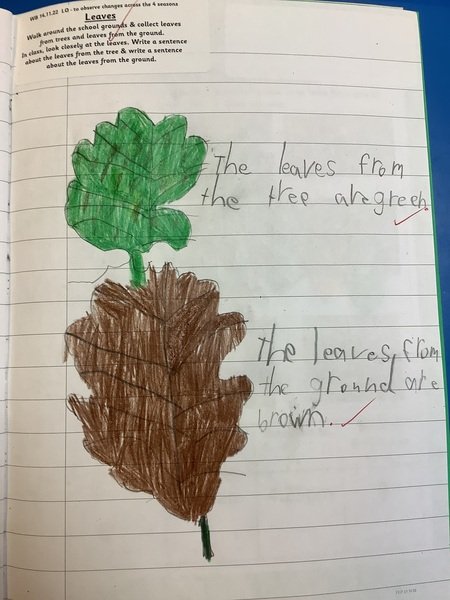 WB 14.11.22 LO - to observe changes across the 4 seasons
Leaves
Walk around the school grounds & collect leaves
from trees and leaves from the ground.
In class, look closely at the leaves. Write a sentence
about the leaves from the tree & write a sentence
about the leaves from the ground.
The leaves from
the tree are green.
The leaves from
the ground are
brown.